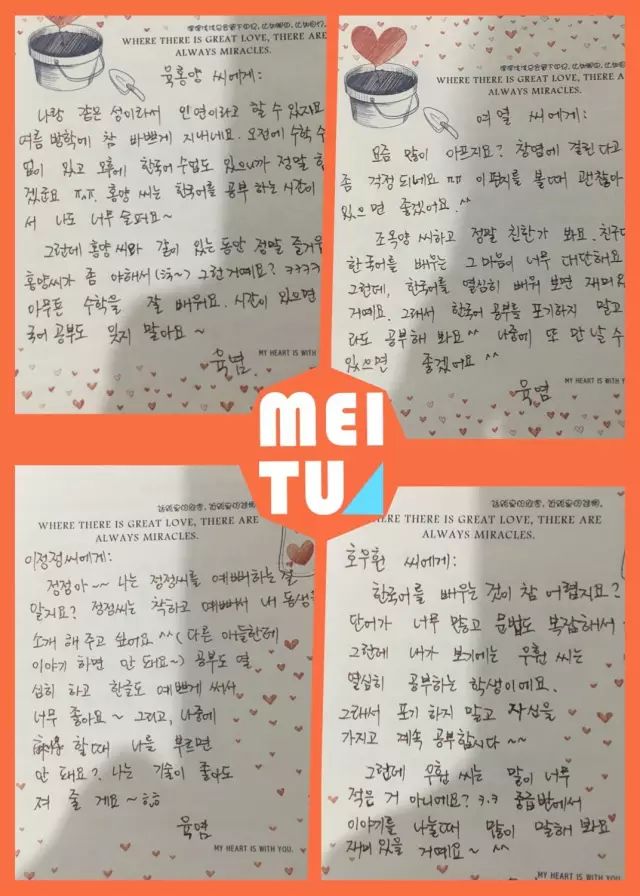 WHERE THERE IS GREAT LOVE, THERE ARE
ALWAYS MIRACLES.
육홍양 씨에게:
나랑 같은 성이라서 인연이라고 할 수 있지요
여름 방학에 참 바쁘게 지내네요. 오전에 수학 수
업이 있고 오후에 한국어 수업도 있으니까 정말 힘
겠군요 ㅠ.ㅠ. 홍양 씨는 한국어를 공부하는 시간이
서 나도 너무 슬퍼요~
그런데 홍양 씨와 같이 있는 동안 정말 즐거우
홍양씨가 좀 야해서 그런거예요? ㅋㅋㅋㅋ
아무튼 수학을 잘 배워요. 시간이 있으면
국어 공부도 잊지 말아요~
육염.
MY HEART IS WITH
WHERE THERE IS GREAT LOVE, THERE A
ALWAYS MIRACLES.
여열 씨에게:
요즘 많이 아프지요? 창염에 걸린다고
좀 걱정되네요 ㅠㅠ 이 편지를 볼 때 괜찮아
있으면 좋겠어요.^^
조옥양 씨하고 정말 친한가 봐요. 친구
한국어를 배우는 그 마음이 너무 대단해요
그런데, 한국어를 열심히 배워 보면 재미
거예요. 그래서 한국어 공부를 포기하지 말고
라도 공부해 봐요^^ 나중에 또 만날 수
있으면 좋겠어요^^
육염
MY HEART IS WITH Y
MEI
TU
WHERE THERE IS GREAT LOVE, THERE
ALWAYS MIRACLES.
이정정씨에게:
정정아~~ 나는 정정씨를 예뻐하는걸
알지요? 정정씨는 착하고 예뻐서 내 동생
소개 해 주고 싶어요.^^(다른 아들한테
이야기 하면 안 돼요~) 공부도 열
심히 하고 한글도 예쁘게 써서
너무 좋아요~ 그리고, 나중에
할 때 나를 부르면
안 돼요? 나는 기술이 좋아도
져 줄 게요~
육염
MY HEART IS WITH YOU.
HERE THERE IS GREAT LOVE, THERE ARE
ALWAYS MIRACLES.
호우환 씨에게:
한국어를 배우는 것이 참 어렵지요?
단어가 너무 많고 문법도 복잡해서
그런데 내가 보기에는 우환 씨는
열심히 공부하는 학생이에요.
그래서 포기 하지 말고 자신을
가지고 계속 공부합시다~~
그런데 우환 씨는 말이 너무
적은 거 아니에요? ㅋ.ㅋ 중급반에서
이야기를 나눌때 많이 말해 봐요
재미 있을 거예요~ ^^
MY HEART IS WITH YOU